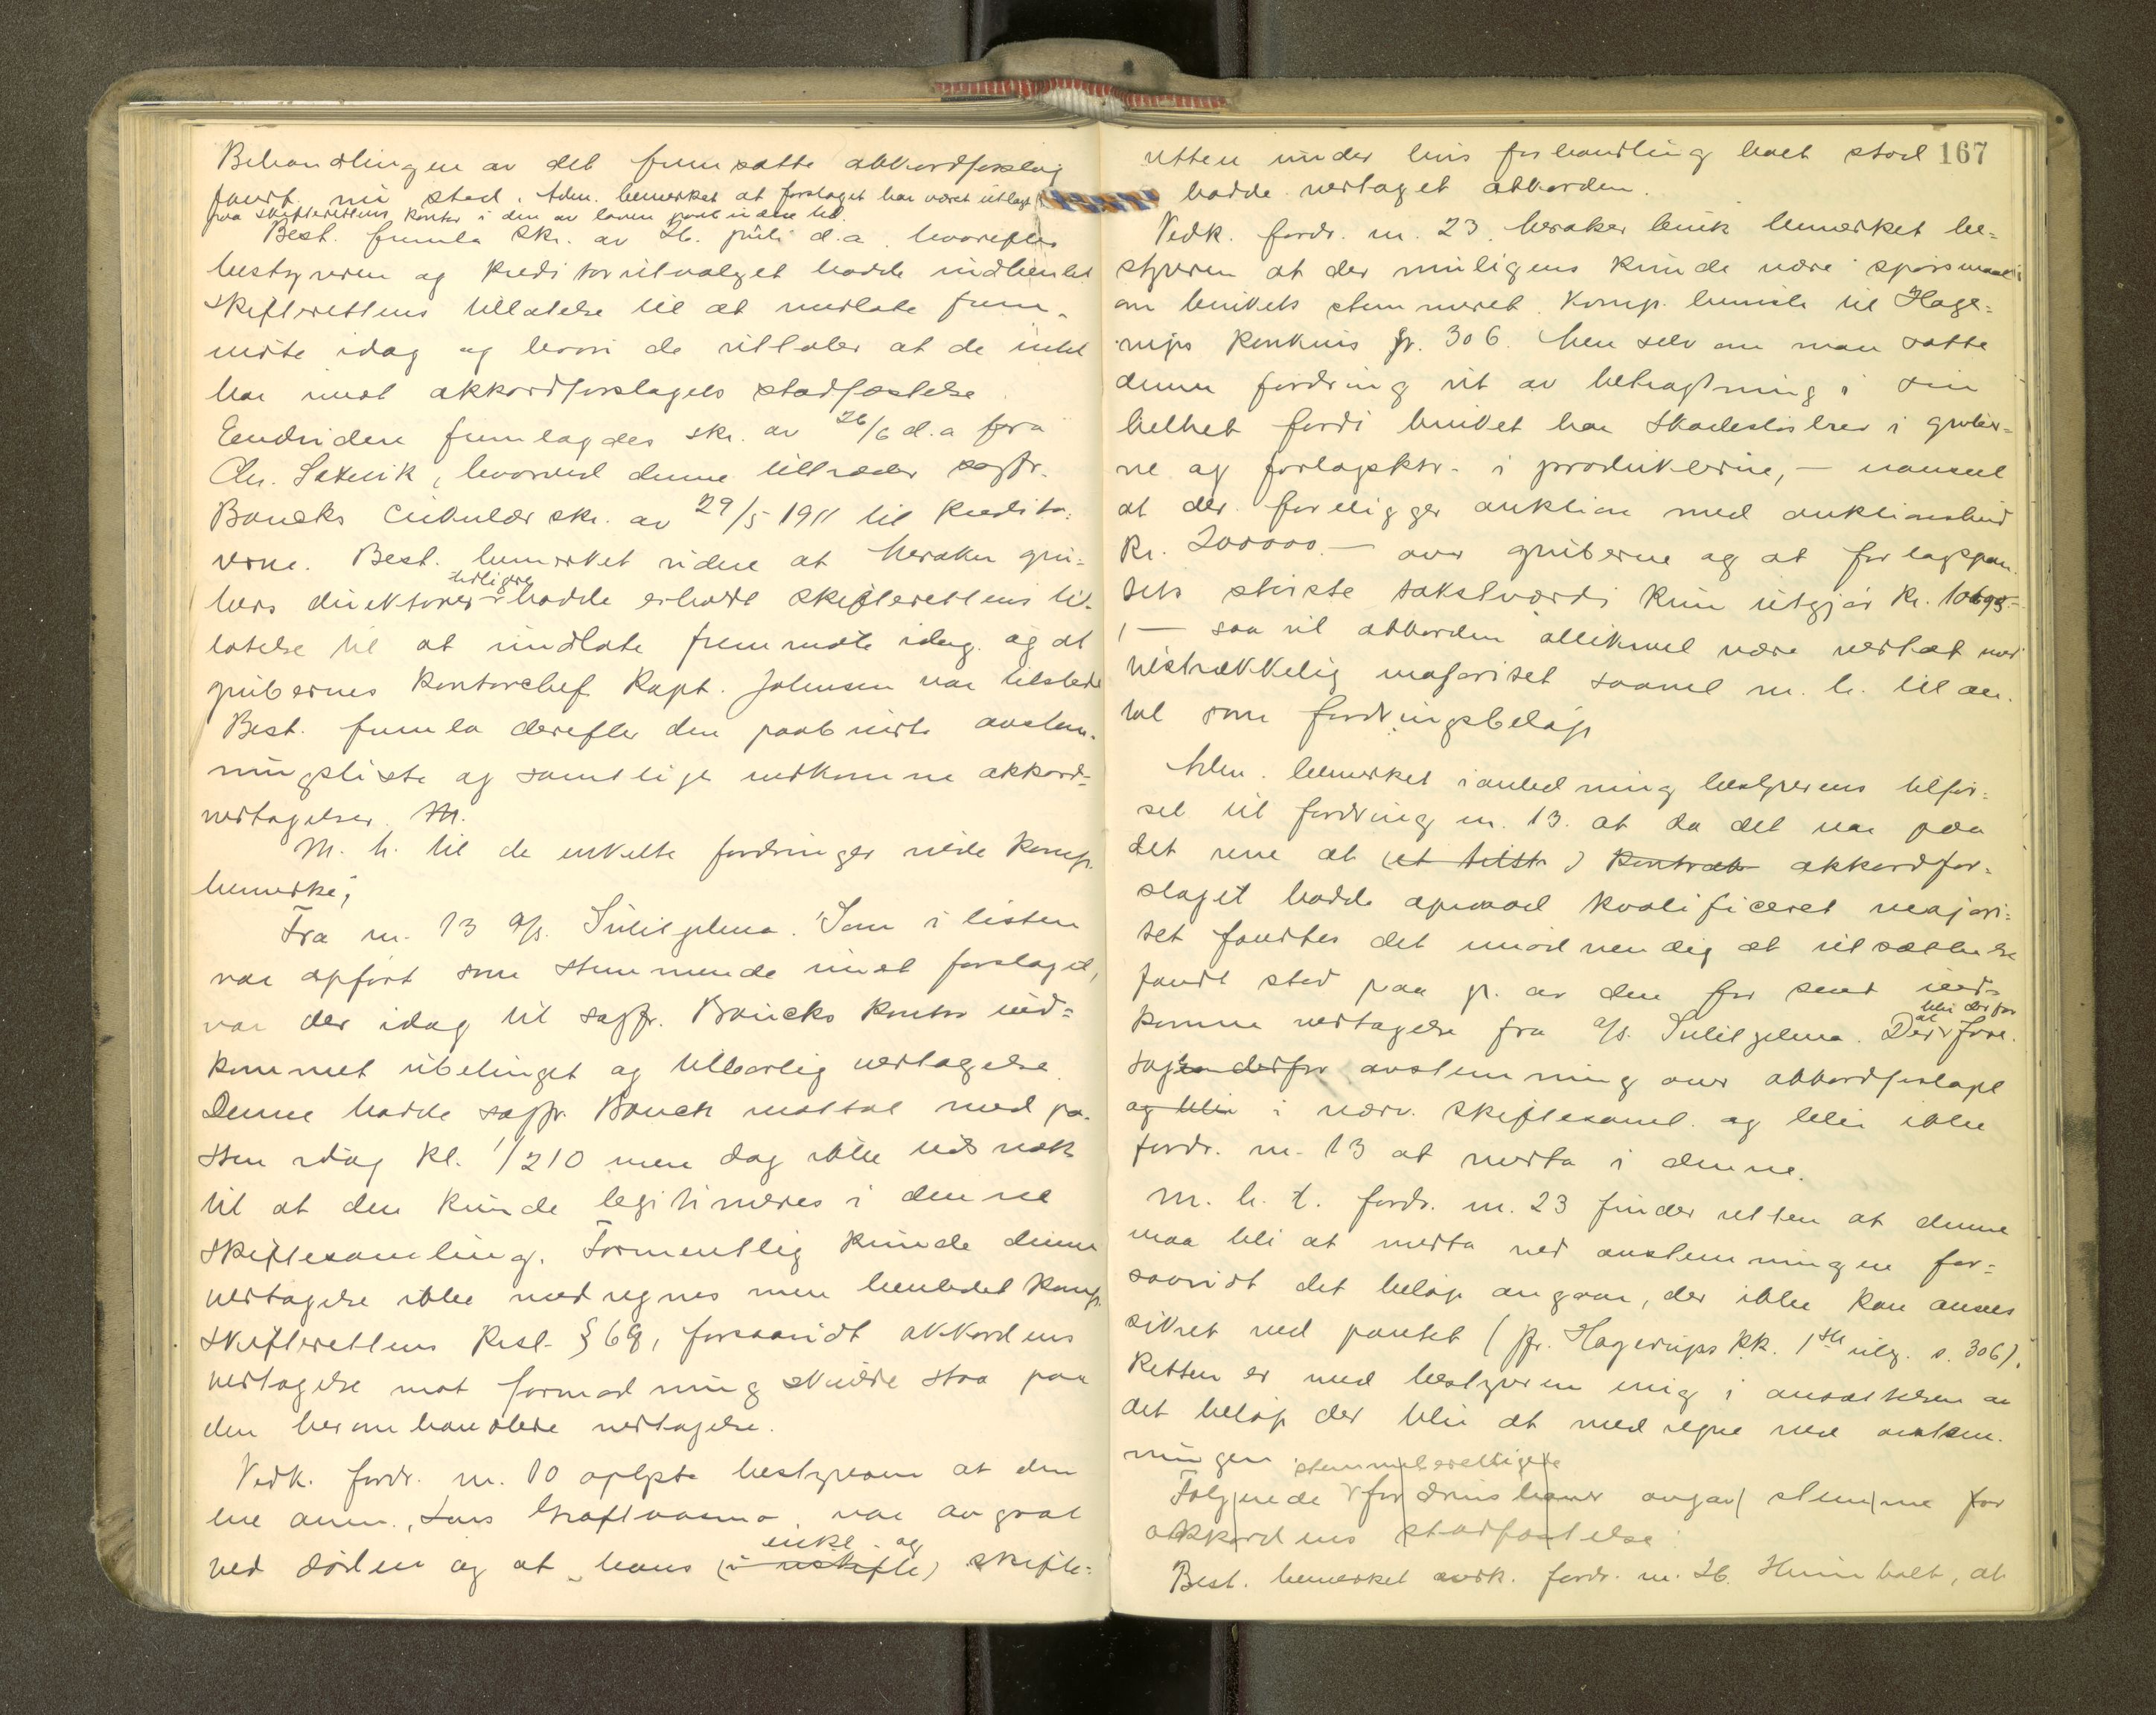 Behandlingen av det fremsatte akkordforslag
fandt nu sted. Adm. bemerket at forslaget har været utlagt
paa skifterettens kontor i den av loven paabudne tid.
Best. fremla skr. av 26. juli d.a. hvorefter
bestyreren og kreditorutvalget hadde indhentet
skifterettens tillatelse til at undlate frem-
møte idag og hvori de uttaler at de intet
har imot akkordforslagets stadfæstelse
Endvidere fremlagdes skr. av 26/6 d.a fra
Chr. , hvorved denne tiltræder sagfr.
Boucks cirkulær skr. av 29/5 1911 til kredito-
rerne. Best. bemerket videre at Meraker gru-
bers direktører tidligere hadde erholdt skifterettens til-
latelse til at undlate fremmøte idag og at
grubernes kontorchef Kapt. Johnsen var tilstede
Best. fremla derefter den paabudte avstem-
ningsliste og samtlige indkomne akkord-
vedtagelser. M.
M. h. til de enkelte fordringer vilde komp.
bemerke;
Fra nr. 13 A/S. Sulitjelma. Som i listen
var opført som stemmende imot forslaget,
var der idag til sagfr. Boucks kontor ind-
kommet ubetinget og tilbørlig vedtagelse.
Denne hadde sagfr. Bouck mottat med po-
sten idag kl. 1/2 10 men dog ikke tids nok
til at den kunde legitimeres i denne
skiftesamling. Formentlig kunde denne
vedtagelse ikke medregnes men henledet komp.
skifterettens Resl. § 69, forsaavidt akkordens
vedtagelse mot formodning skulde staa paa
den heromhandlede vedtagelse.
Vedk. fordr. nr. 10 oplyste bestyreren at den
ene anm., Lars , var avgaat
ved døden og at hans (i uskifte) enke- og skifte-
retten under hvis forhandling boet stod 167
hadde vedtaget akkorden.
Vedk. fordr. nr. 23. Meraker bruk bemerket be-
styreren at der muligens kunde være spørsmaal
om brukets stemmeret. Komp. henviste til Hage-
rups Konkurs pr. 306. Men selv om man satte
denne fordring ut av betragtning i sin
helhet fordi bruket har Skadesløsbrev i gruber-
ne og forlagsktr. i produkterne, – uanset
at der foreligger auktion med auktionsbud
Kr. 200000.– over gruberne og at forlagspan-
tets største takstværdi kun utgjør Kr. 10695.–
, – saa vil akkorden allikevel være vedtat med
tilstrækkelig majoritet saavel m. h. til an-
tal som fordringsbeløp
Adm. bemerket i anledning bestyrerens tilfør-
sel til fordring nr. 13. at da det var paa
det rene at (et tilst) kontrakt akkordfor-
slaget hadde opnaad kvalificeret majori-
tet fandtes det unødvendig at utsættelse
fandt sted paa gr. av den for sent ind-
komne vedtagelse fra A/S. Sulitjelma. Der blir derfor at fore-
tages derfor avstemning over akkordforslaget
og blir i nærv. skiftesaml. og blir ikke
fordr. nr. 13 at medta i denne.
M. h. t. fordr. nr. 23 finder retten at denne
maa bli at medta ved avstemningen for-
saavidt det beløp angaar, der ikke kan ansees
sikret ved pantet (jfr. Hagerups KK. 1ste utg. s. 306).
Retten er med bestyreren enig i ansættelsen av
det beløp der blir at medregne ved avstem-
ningen
Følgende stemmeberettigede fordringshavere avgav stemme for
akkordens stadfæstelse:
Best. bemerket vedk. fordr. nr. 26. , at